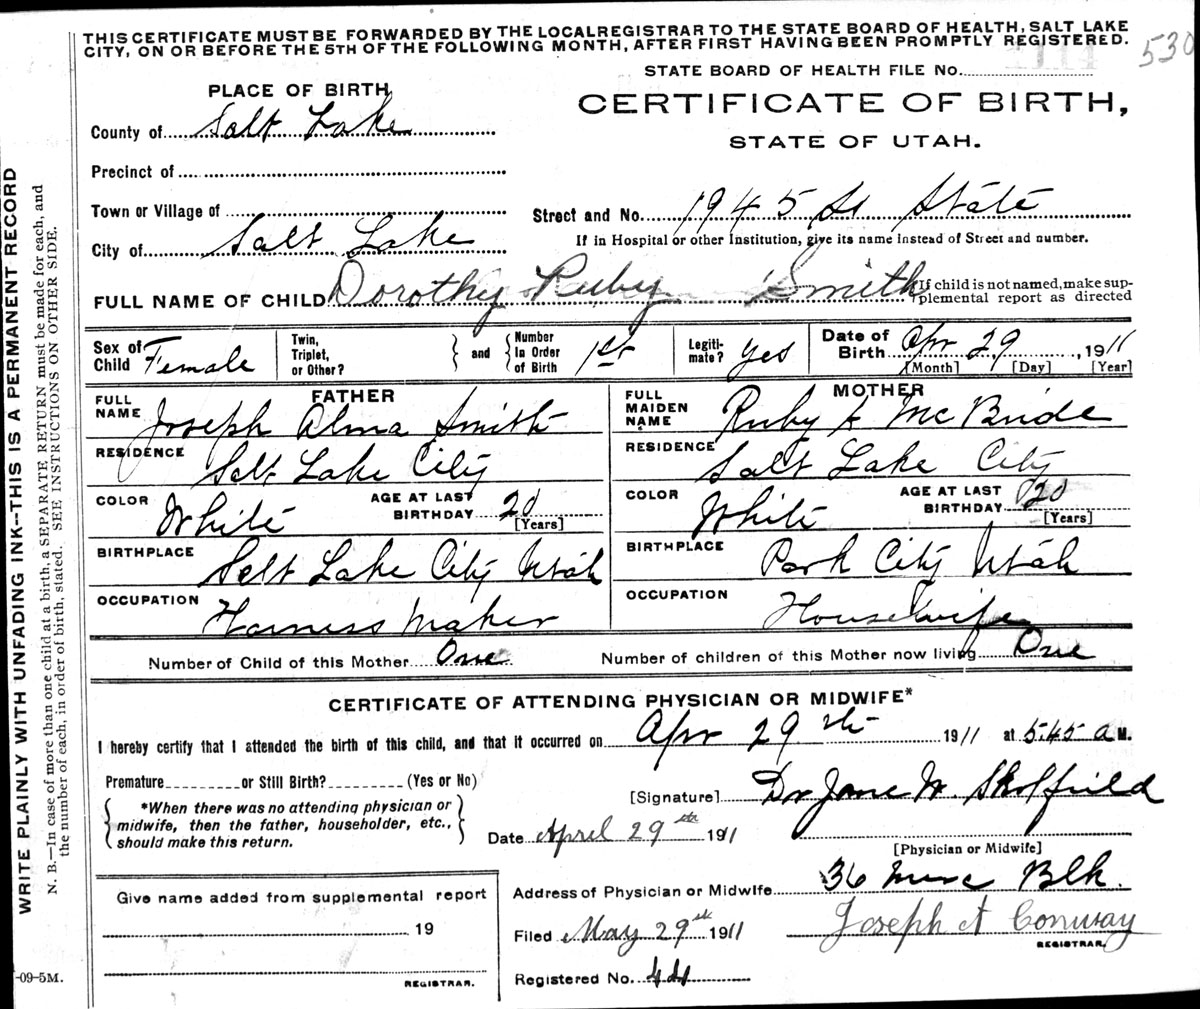 THIS CERTIFICATE MUST BE FORWARDED BY THE LOCALREGISTRAR TO THE STATE BOARD OF HEALTH, SALT LAKE
CITY, ON OR BEFORE THE 5TH OF THE FOLLOWING MONTH, AFTER FIRST HAVING BEEN PROMPTLY REGISTERED.
530
STATE BOARD OF HEALTH FILE No.
PLACE OF BIRTH
CERTIFICATE OF BIRTH,
STATE OF UTAH.
County of Salt Lake
Precinct of
Town or Village of
Street and No. 1945 So State
City of Salt Lake
If in Hospital or other Institution, give its name instead of Street and number.
FULL NAME OF CHILD Dorothy Ruby Smith
If child is not named, make sup-
plemental report as directed
Sex of Child Female
Twin, Triplet, or Other?
and Number in Order of Birth 1st
Legiti-mate? Yes
Date of Birth Apr 29, 1911
[Month] [Day] [Year]
FATHER
FULL NAME Joseph Alma Smith
RESIDENCE Salt Lake City
COLOR White AGE AT LAST BIRTHDAY 20 [Years]
BIRTHPLACE Salt Lake City Utah
OCCUPATION Harness Maker
MOTHER
FULL MAIDEN NAME Ruby A McBride
RESIDENCE Salt Lake City
COLOR White AGE AT LAST BIRTHDAY 20 [Years]
BIRTHPLACE Park City Utah
OCCUPATION Housewife
Number of Child of this Mother One Number of children of this Mother now living One
CERTIFICATE OF ATTENDING PHYSICIAN OR MIDWIFE*
I hereby certify that I attended the birth of this child, and that it occurred on Apr 29th 1911 at 5:45 a M.
Premature or Still Birth? (Yes or No)
*When there was no attending physician or
midwife, then the father, householder, etc.,
should make this return.
[Signature] Dr Jane W. Skolfield
Date April 29th 1911
[Physician or Midwife]
Address of Physician or Midwife 36 Blk.
Give name added from supplemental report
19
REGISTRAR.
Filed May 29th 1911 Joseph A Conway
REGISTRAR.
Registered No. 44
WRITE PLAINLY WITH UNFADING INK--THIS IS A PERMANENT RECORD
N. B.—In case of more than one child at a birth, a SEPARATE RETURN must be made for each, and
the number of each, in order of birth, stated. SEE INSTRUCTIONS ON OTHER SIDE.
-09-5M.